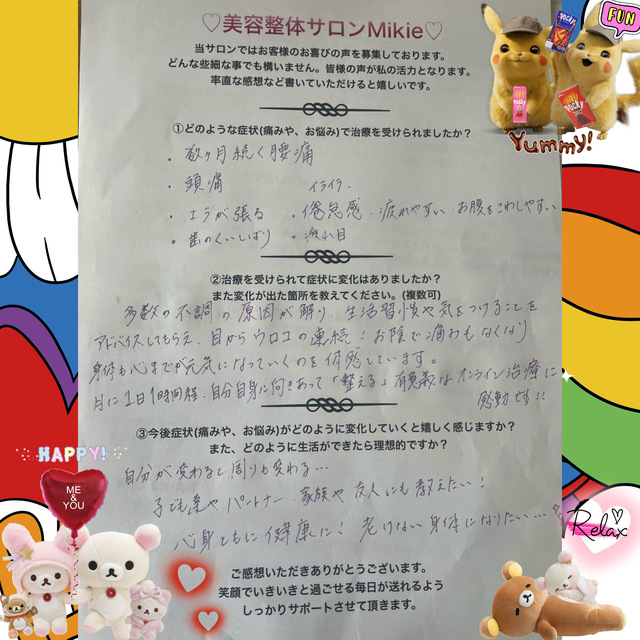 ♡美容整体サロンMikie♡
当サロンではお客様のお喜びの声を募集しております。
どんな些細な事でも構いません。皆様の声が私の活力となります。
率直な感想など書いていただけると嬉しいです。
FUN
Pocky
Pocky
Pocky
Yummy!
①どのような症状(痛みや、お悩み)で治療を受けられましたか?
・数ヶ月続く腰痛
・頭痛
イライラ、
・エラが張る ・倦怠感、疲れやすい お腹をこわしやすい
・歯のくいしばり ・疲れ目
②治療を受けられて症状に変化はありましたか?
また変化が出た箇所を教えてください。(複数可)
多数の不調の原因が解り、生活習慣や気をつけることを
アドバイスしてもらえ、目からウロコの連続!お陰で痛みもなくなり
身体も心までが元気になっていくのを体感しています。
月に1日1時間程、自分自身に向きあって「整える」有意義なオンライン治療に
感動です!!
③今後症状(痛みや、お悩み)がどのように変化していくと嬉しく感じますか?
また、どのように生活ができたら理想的ですか?
HAPPY!
ME
&
YOU
自分が変わると周りも変わる…
子ども達やパートナー、家族や友人にも教えたい!
心身ともに健康に!老けない身体になりたい…
Relax
ご感想いただきありがとうございます。
笑顔でいきいきと過ごせる毎日が送れるよう
しっかりサポートさせて頂きます。